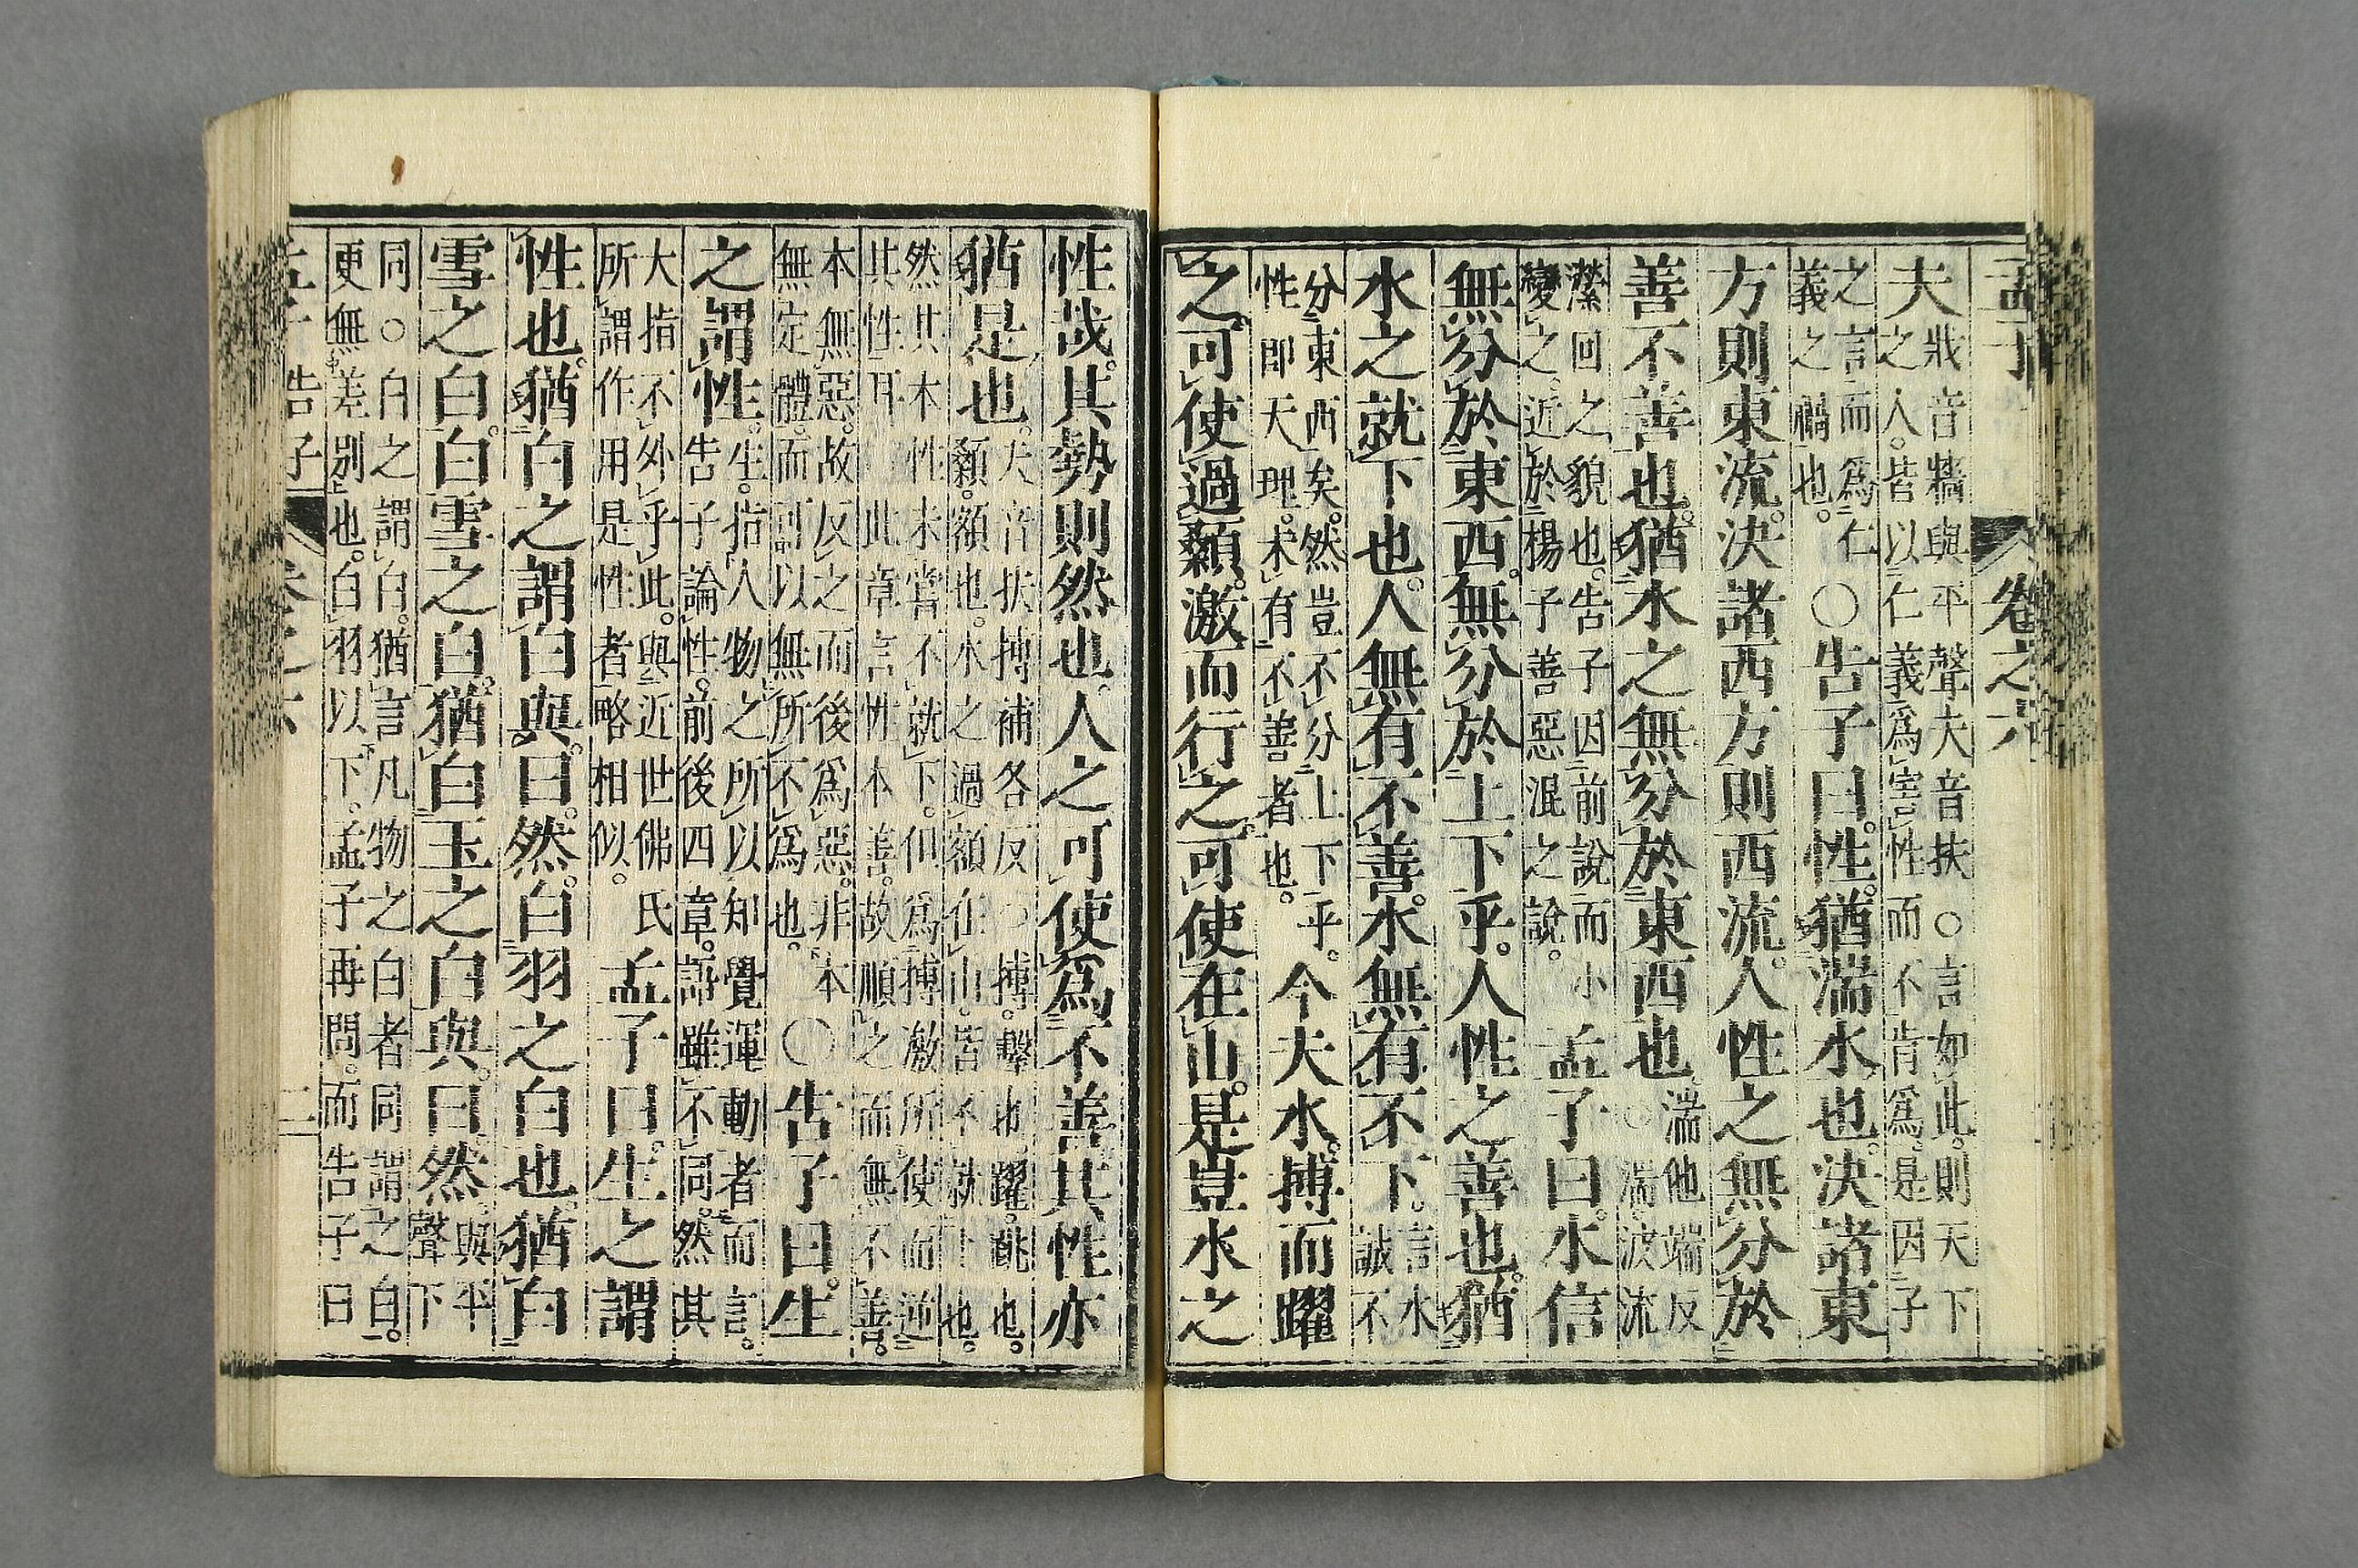 孟子 卷之六
夫戕音牆與平聲夫音扶○言如此。則天下之人。皆以仁義爲害性而不肯爲。是因子
之言而爲仁義之禍也。○告子曰。性。猶湍水也。決諸東
方則東流。決諸西方則西流。人性之無分於
善不善也。猶水之無分於東西也湍他端反○湍。波流
瀠回之貌也。告子因前說而小變之。近於楊子善惡混之說。孟子曰。水信
無分於東西。無分於上下乎。人性之善也。猶
水之就下也。人無有不善。水無有不下。言水誠不
分東西矣。然豈不分上下乎。性即天理。未有不善者也。今夫水。搏而躍
之。可使過顙。激而行之。可使在山。是豈水之
性哉。其勢則然也。人之可使爲不善。其性亦
猶是也。夫音扶搏補各反○搏。擊也。躍。跳也。顙。額也。水之過額在山。皆不就下也。
然其本性未嘗不就下。但爲搏激所使而逆其性耳○此章言性本善。故順之而無不善。
本無惡。故反之而後爲惡。非本無定體。而可以無所不爲也。○告子曰。生
之謂性。生。指人物之所以知覺運動者而言。告子論性。前後四章。語雖不同。然其
大指不外乎此。與近世佛氏所謂作用是性者略相似。孟子曰。生之謂
性也。猶白之謂白與。曰。然。白羽之白也。猶白
雪之白。白雪之白。猶白玉之白與。曰。然。與平聲下
同○白之謂白。猶言凡物之白者同謂之白。更無差別也。白羽以下。孟子再問。而告子曰
孟子 告子 卷之六 二